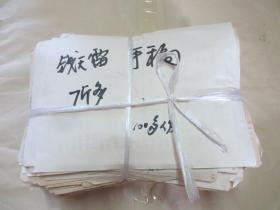 钱天留 手稿
7斤多
100多份